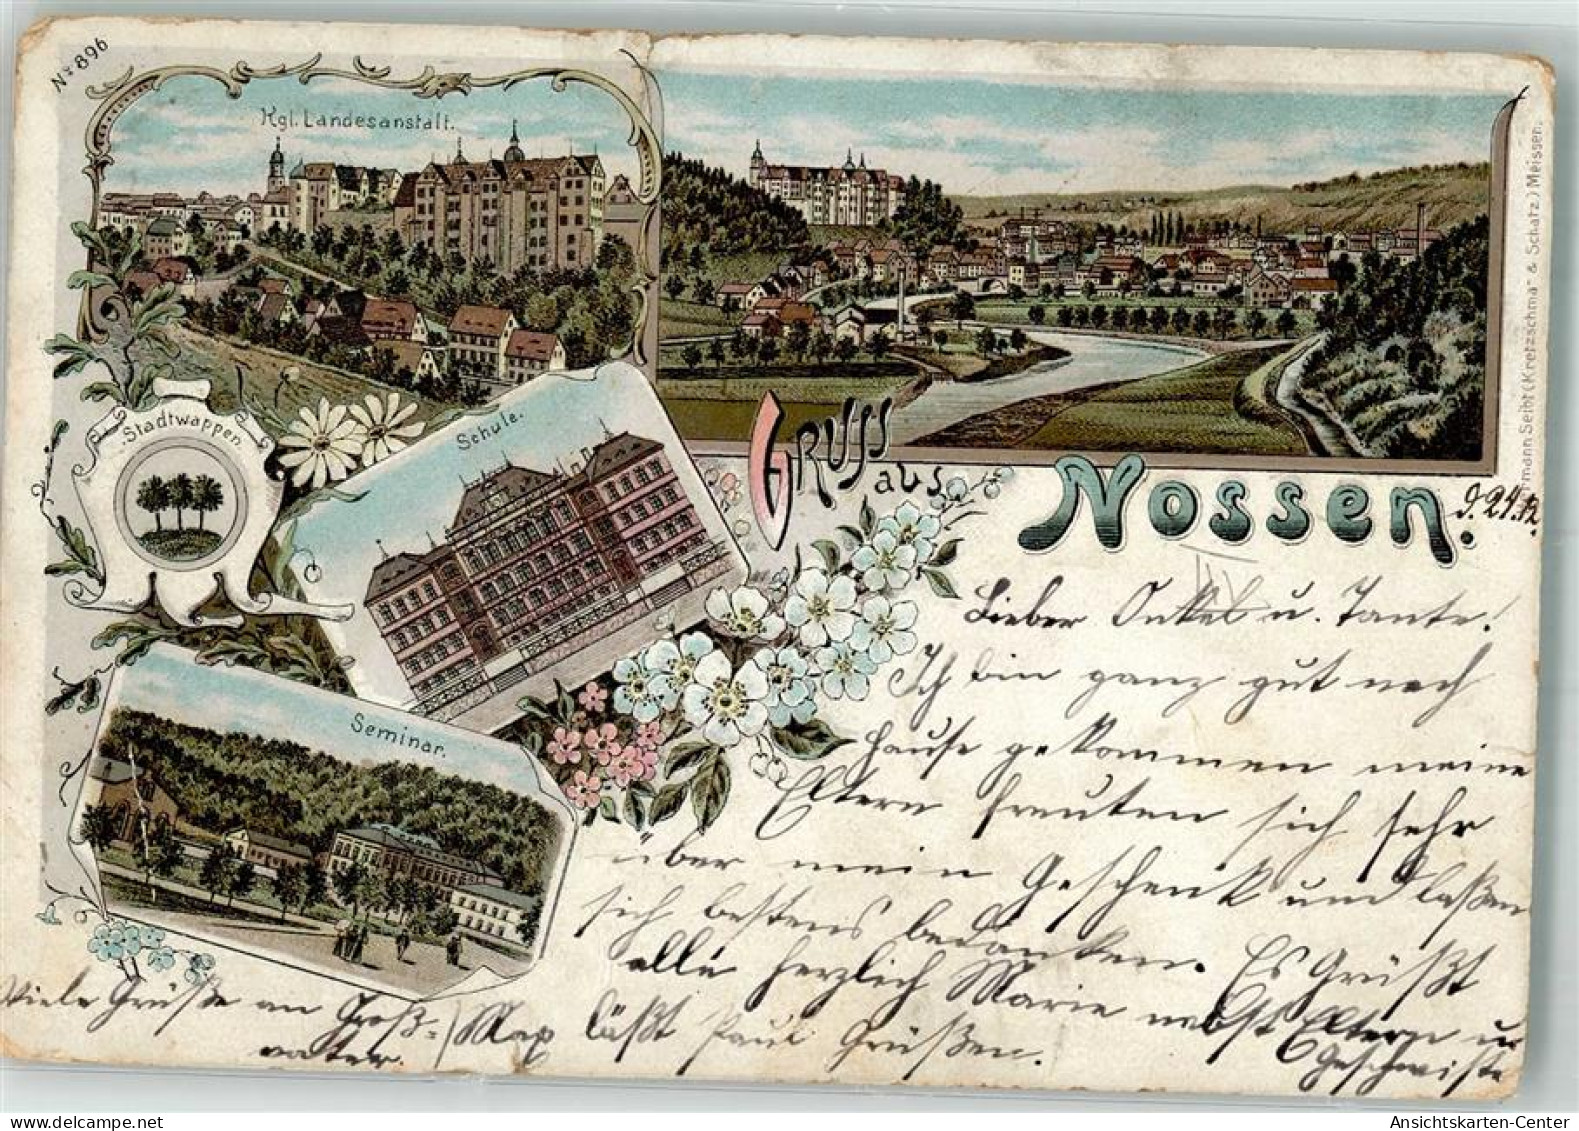 No 896
Kgl. Landesanstalt.
Stadtwappen.
Schule.
Seminar.
Gruss aus Nossen.
d. 24.12.
Lieber Onkel u. Tante!
Ich bin ganz gut nach
Hause gekommen meine
Eltern freuten sich sehr
über mein Geschenk und laßen
sich bestens bedanken. Es Grüßt
alle herzlich Marie nebst Eltern u
Geschwiste
Viele Grüße an Groß-
vater.
Max läßt Paul Grüßen.
mann Seibt (Kretzschmar & Schatz) Meissen.
Ansichtskarten-Center